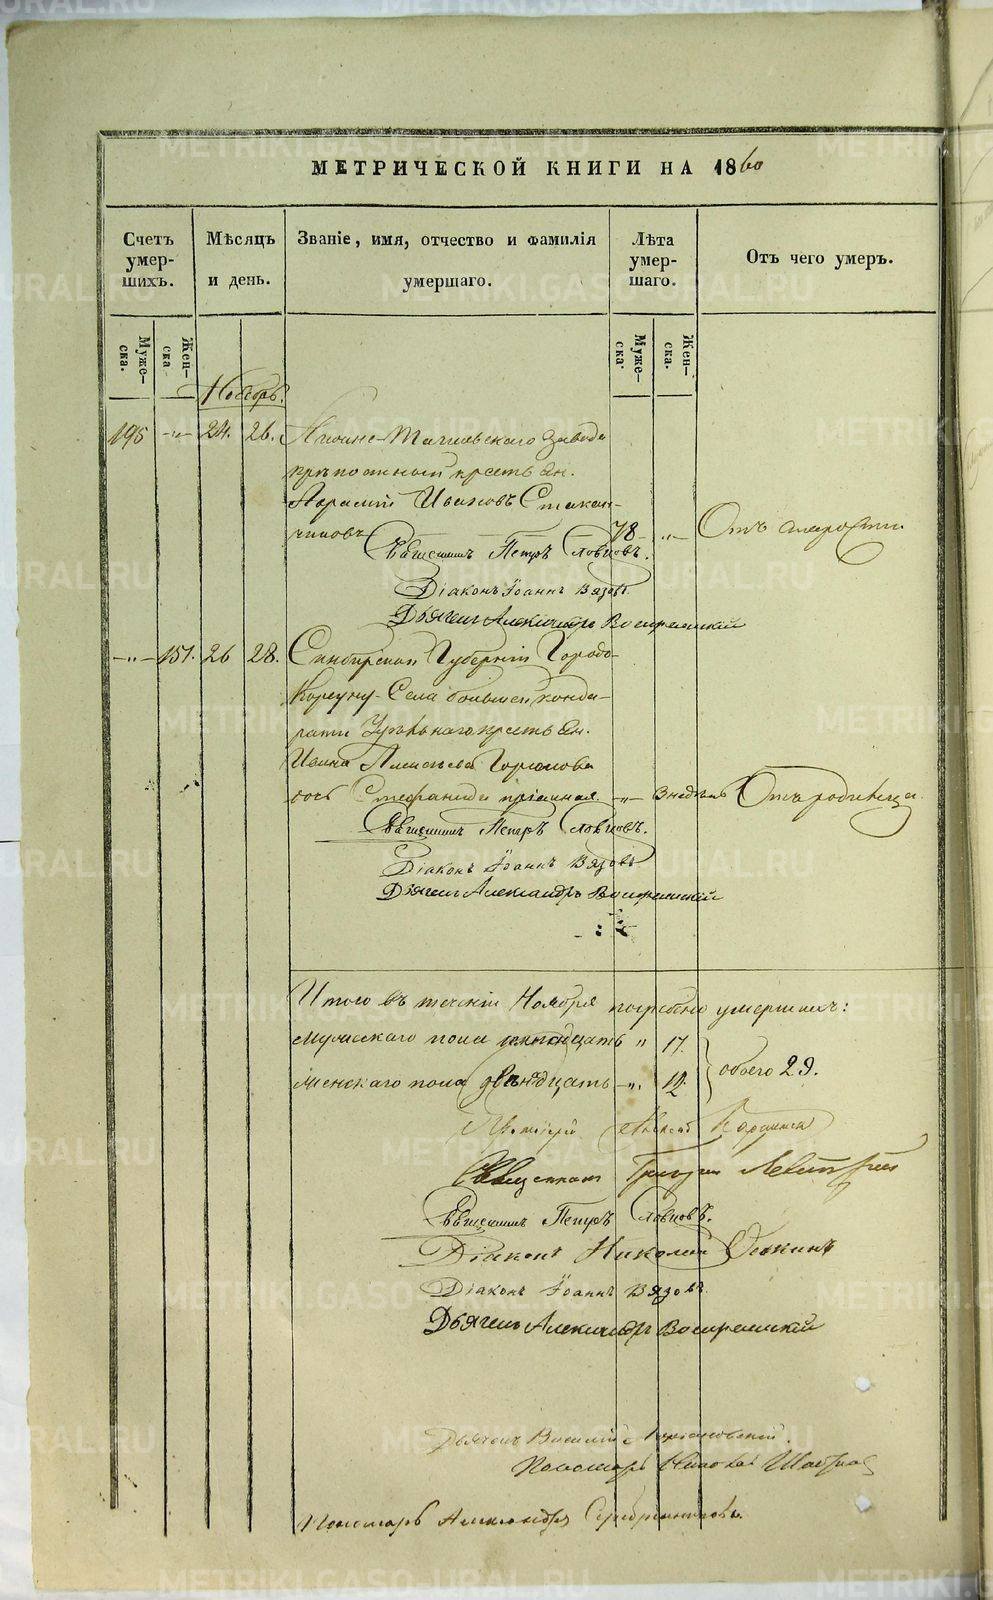 МЕТРИЧЕСКОЙ КНИГИ НА 1860
Счетъ умершихъ.
Мѣсяцъ и день.
Званіе, имя, отчество и фамилія умершаго.
Лѣта умершаго.
Отъ чего умеръ.
Мужеска.
Женска
Мужеска.
Женска.
Ноябрь.
195 -„- 24. 26. Нижне-Тагильскаго завода
крѣпостный крестьян.
Ивановъ Стакан-
чиковъ 78 -„- Отъ старости.
Священникъ Петръ Словцовъ.
Діаконъ Іоаннъ Вязовъ.
Дьячекъ Александръ Воскресенскій
-„- 151. 26 28. Симбирской Губерніи Города
Корсуну Села большей канда-
рати Удѣльнаго крестьян.
Ивана Алексѣева
дочь Стефанида -„- 3 недѣль Отъ родимца.
Священникъ Петръ Словцовъ.
Діаконъ Іоаннъ Вязовъ
Дьячекъ Александръ Воскресенскій
Итого въ теченіи Ноября погребено умершихъ:
мужескаго пола " 17.
женскаго пола двѣнадцать -„. 12. обоего 29.
Священникъ Григорій
Священникъ Петръ Словцовъ.
Діаконъ Николай
Діаконъ Іоаннъ Вязовъ.
Дьячекъ Александръ Воскресенскій
Дьячекъ Василій
Пономарь Николай
Пономарь Александръ Серебрениковъ.
METRIKI.GASO-URAL.RU